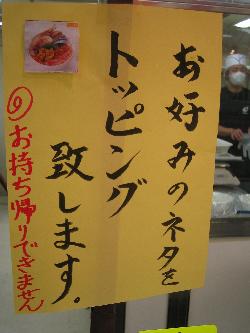 お好みのネタを
トッピング
致します。
お持ち帰りできません